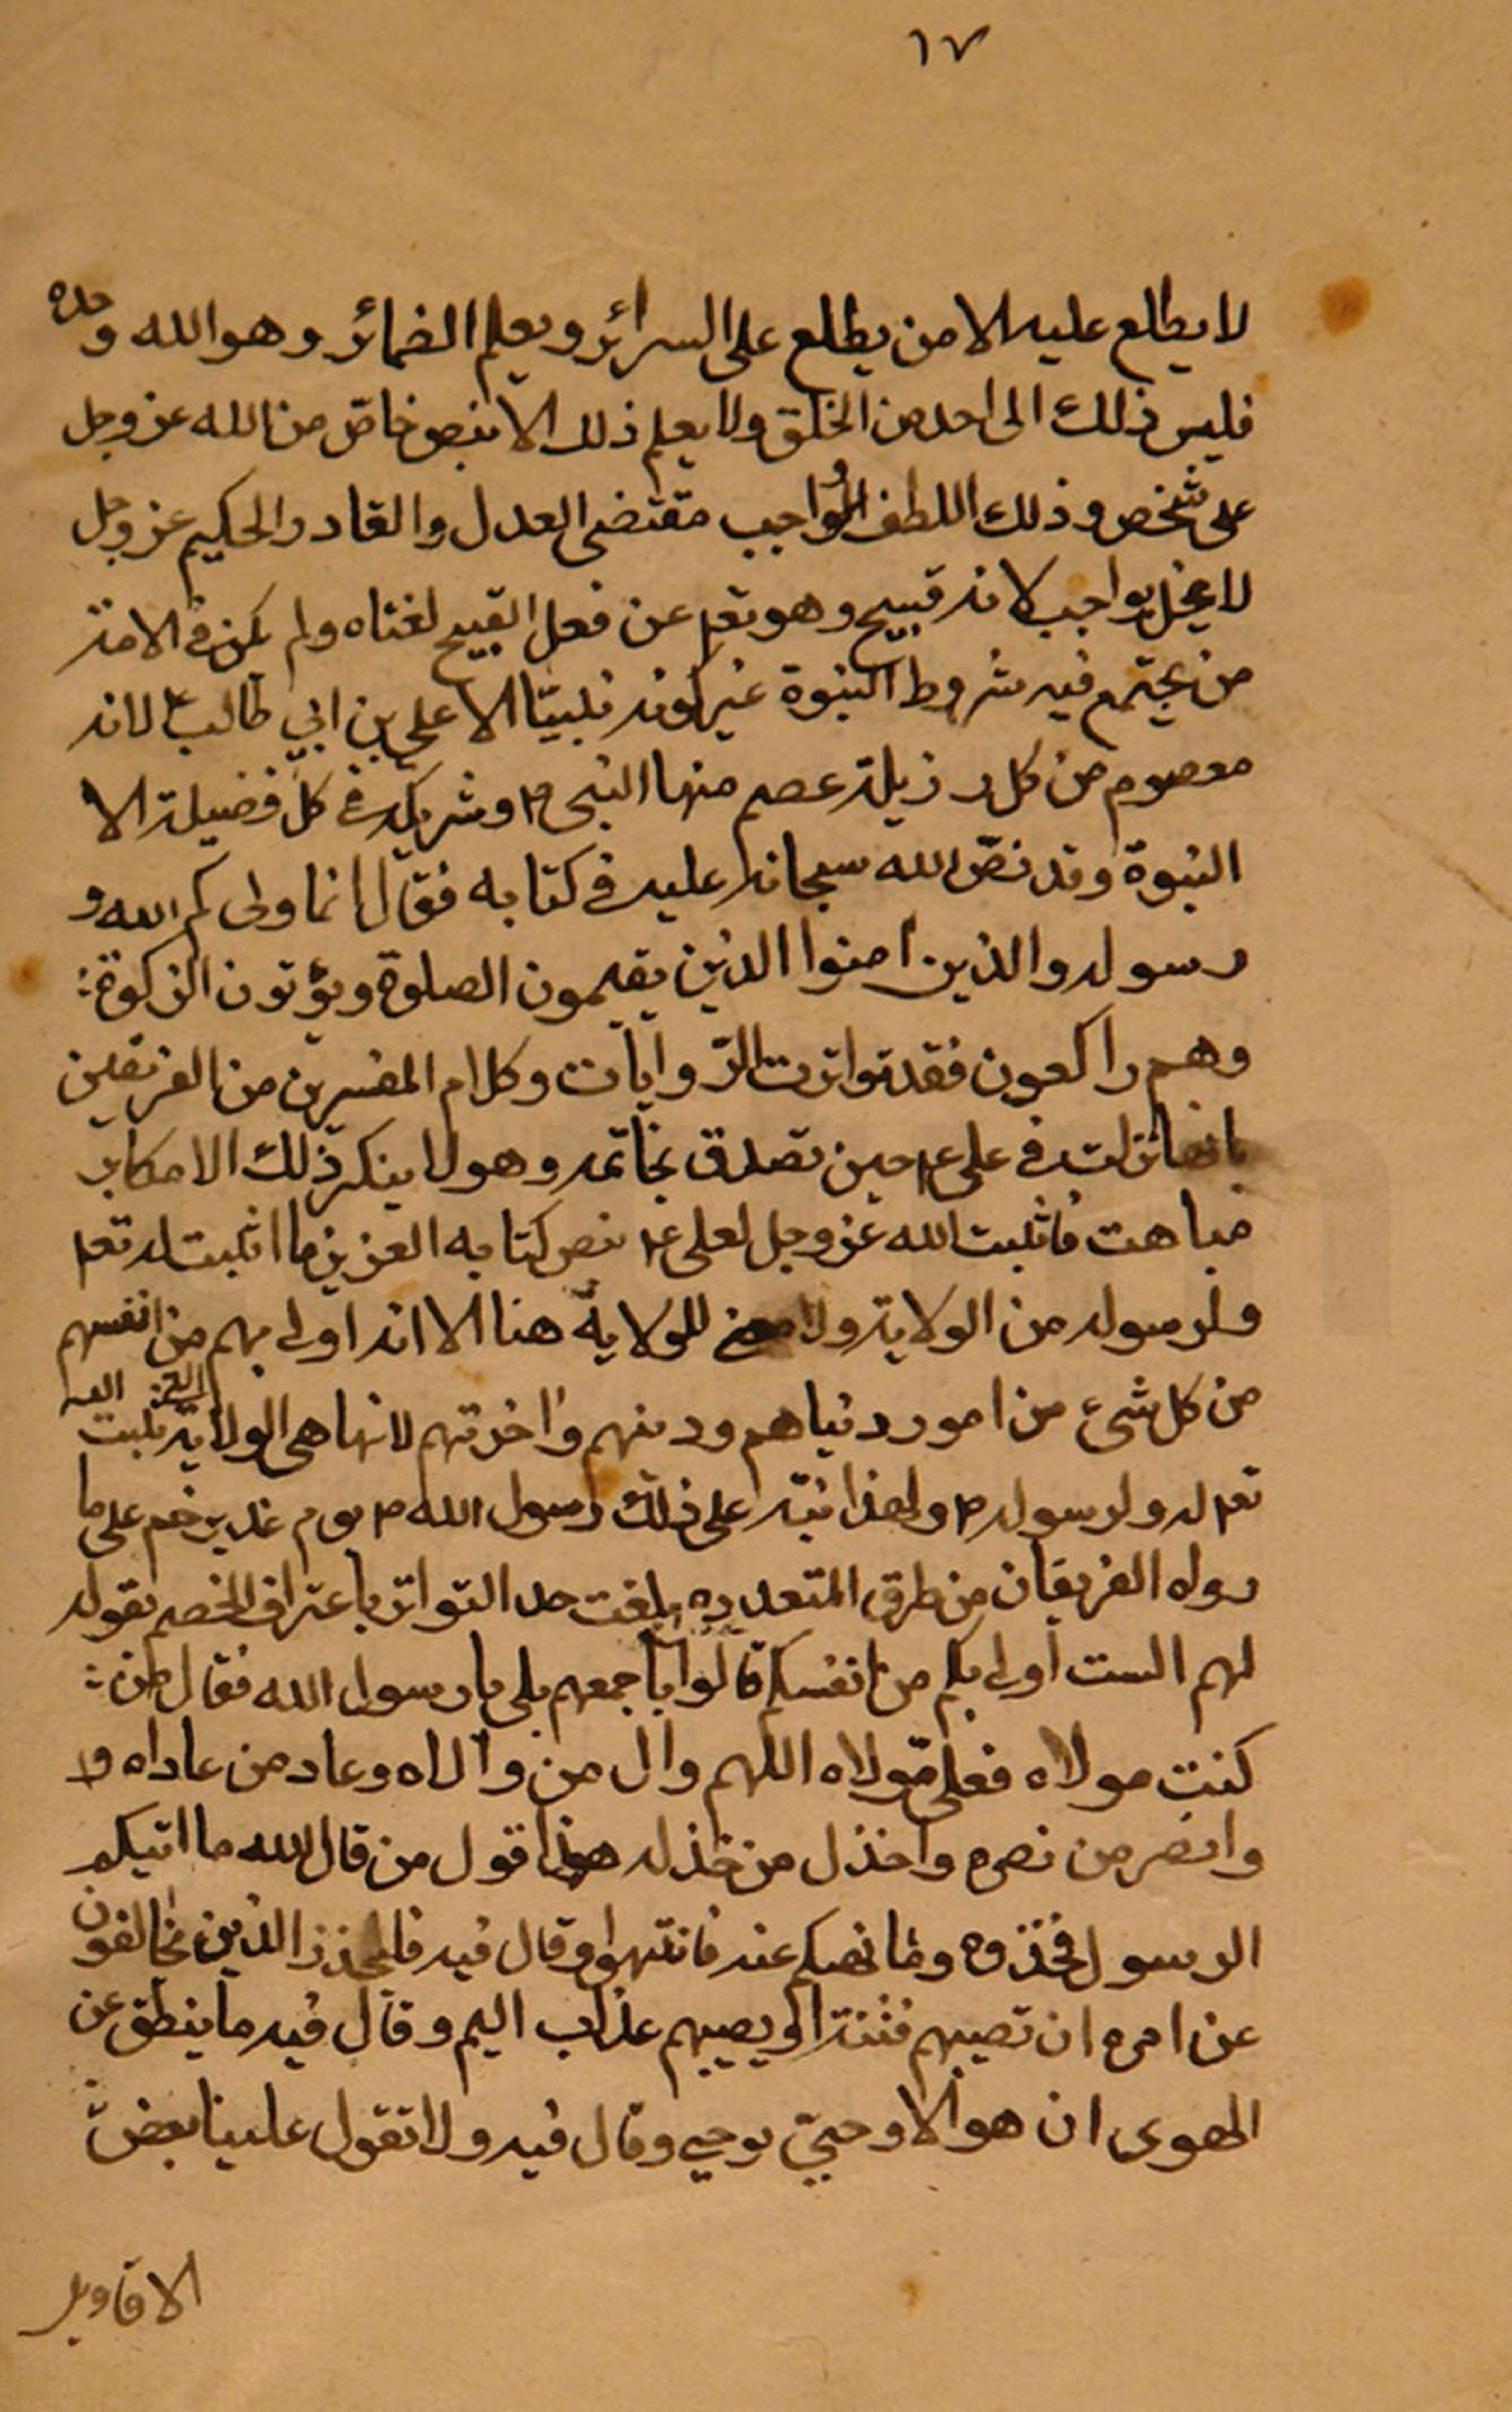 ١٧
لا يطلع عليه الا من يطلع على السرائر ويعلم الضمائر وهو الله وحده
فليس ذلك الى احد من الخلق ولا يعلم ذلك الا بنص خاصّ من الله عز وجل
على شخص وذلك اللطف الواجب مقتضى العدل والقادر الحكيم عز وجل
لا يخل بواجب لانه قبيح وهو تعم عن فعل القبيح لغناه ولم يكن في الامة
من يجتمع فيه شروط النبوة غير كونه نبيّا الا علي بن ابي طالب ع لانه
معصوم من كل رذيلة عصم منها النبي ص وشريكه في كلّ فضيلة الا
النبوة وقد نصّ الله سبحانه عليه في كتابه فقال انما وليكم الله و
رسوله والذين امنوا الذين يقيمون الصلوة ويؤتون الزكوة:
وهم راكعون فقد تواترت الرّوايات وكلام المفسرين من الفريقين
بانها نزلت في علي ع حين تصدق بخاتمه وهو لا ينكر ذلك الا مكابر
مباهت فاثبت الله عز وجل لعلي ع بنص كتابه العزيز ما اثبت له تعم
ولرسوله من الولاية ولا معنى للولاية هنا الا انه اولى بهم من انفسهم
من كل شيء من امور دنياهم ودينهم واخرتهم لانها هي الولاية التي ثبت الله
تعم له ولرسوله ص ولهذا نبّه على ذلك رسول الله ص يوم غدير خم على ما
رواه الفريقان من طرق المتعدده بلغت حد التواتر باعتراف الخصم بقوله
لهم الست اولى بكم من انفسكم قالوا باجمعهم بلى يا رسول الله فقال من:
كنت مولاه فعلي مولاه اللهم وال من والاه وعاد من عاداه و
وانصر من نصره واخذل من خذله هذا قول من قال الله ما اتيكم
الرسول فخذوه وما نهيكم عنه فانتهوا وقال فيه فليحذر الذين يخالفون
عن امره ان تصيبهم فتنة او يصيبهم عذاب اليم وقال فيه ما ينطق عن
الهوى ان هو الا وحيّ يوحي وقال فيه ولا تقول علينا بعض
الاقاويل